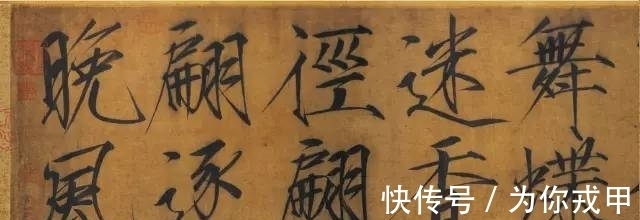 舞蝶
迷香
徑翩
翩逐
晚風
快传号 / 为你戎甲